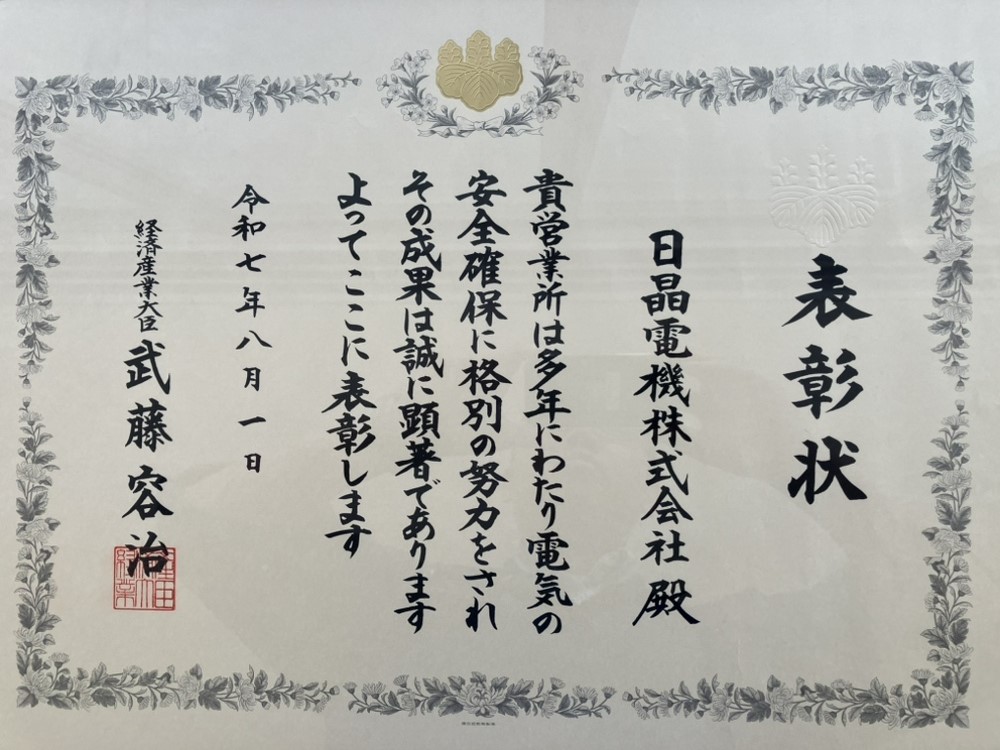 表彰状
日晶電機株式会社 殿
貴営業所は多年にわたり電気の
安全確保に格別の努力をされ
その成果は誠に顕著であります
よってここに表彰します
令和七年八月一日
経済産業大臣 武藤容治